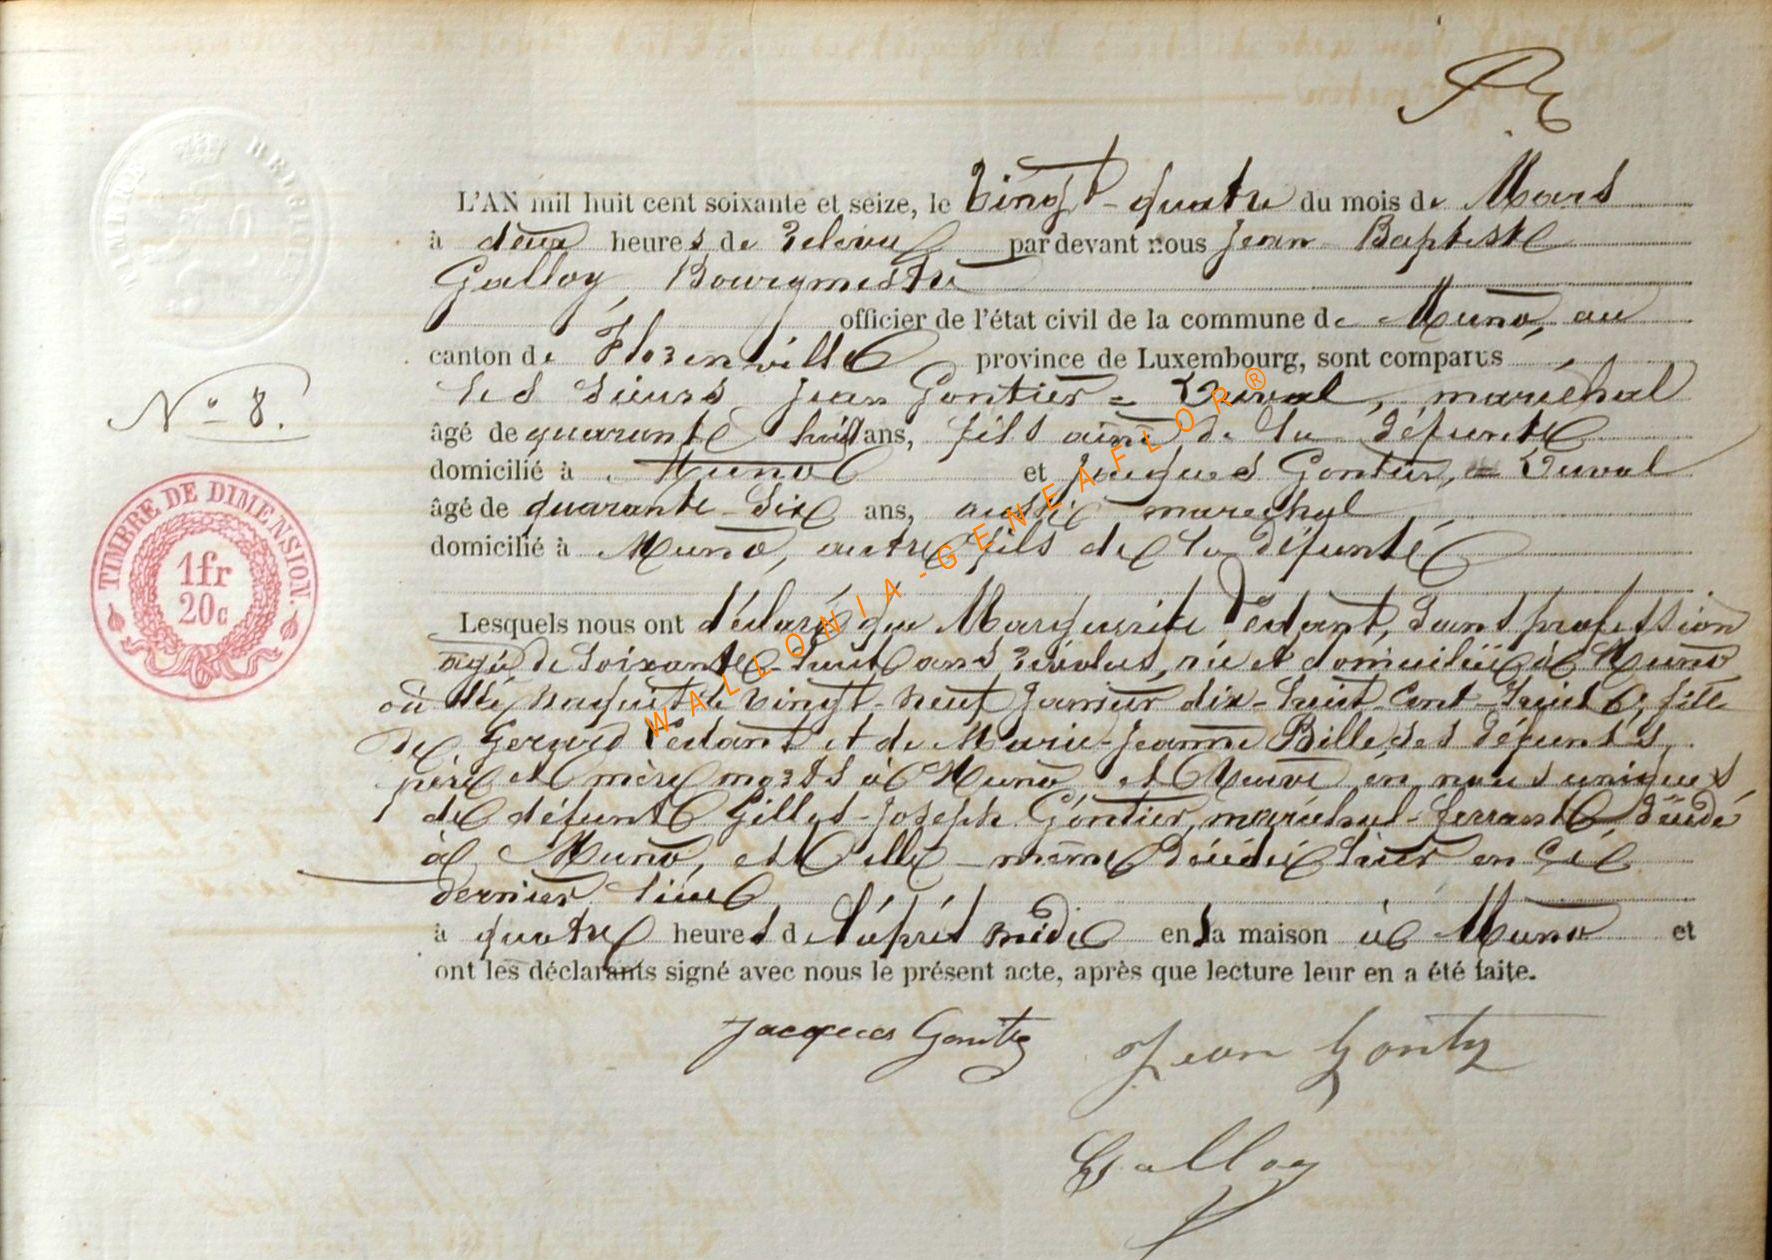 BELGIQUE
L'AN mil huit cent soixante et seize, le vingt-quatre du mois de Mars
à deux heures de relevée par devant nous Jean Baptiste
Galloy Bourgmestre
officier de l'état civil de la commune de Muno, au
canton de Florenville province de Luxembourg, sont comparus
les sieurs Jean Gontier = Duval, maréchal
âgé de quarante huit ans, fils ainé de la défunte
domicilié à Muno et Jacques Gontier, = Duval
âgé de quarante-six ans, aussi marechal
domicilié à Muno, autre fils de la défunte
Lesquels nous ont déclaré que Marguerite Pestant, sans profession
agée de soixante-huit ans révolus, née et domiciliée à Muno
où elle naquit le vingt-neuf Janvier dix-huit-cent-huit, fille
de Gerard Pestant et de Marie-Jeanne Bille, ses défunts
père et mère morts à Muno, et Veuve en noces uniques
de défunt Gilles-Joseph Gontier, maréchal-ferrant décédé
à Muno, et elle-même décédée hier en ce
dernier lieu
à quatre heures de l'après midi en sa maison à Muno et
ont les déclarants signé avec nous le présent acte, après que lecture leur en a été faite.
Nº 8.
TIMBRE DE DIMENSION.
1fr
20c
WALLONIA-GENEAFLOR®
Jacques Gontier
Jean Gontier
Galloy